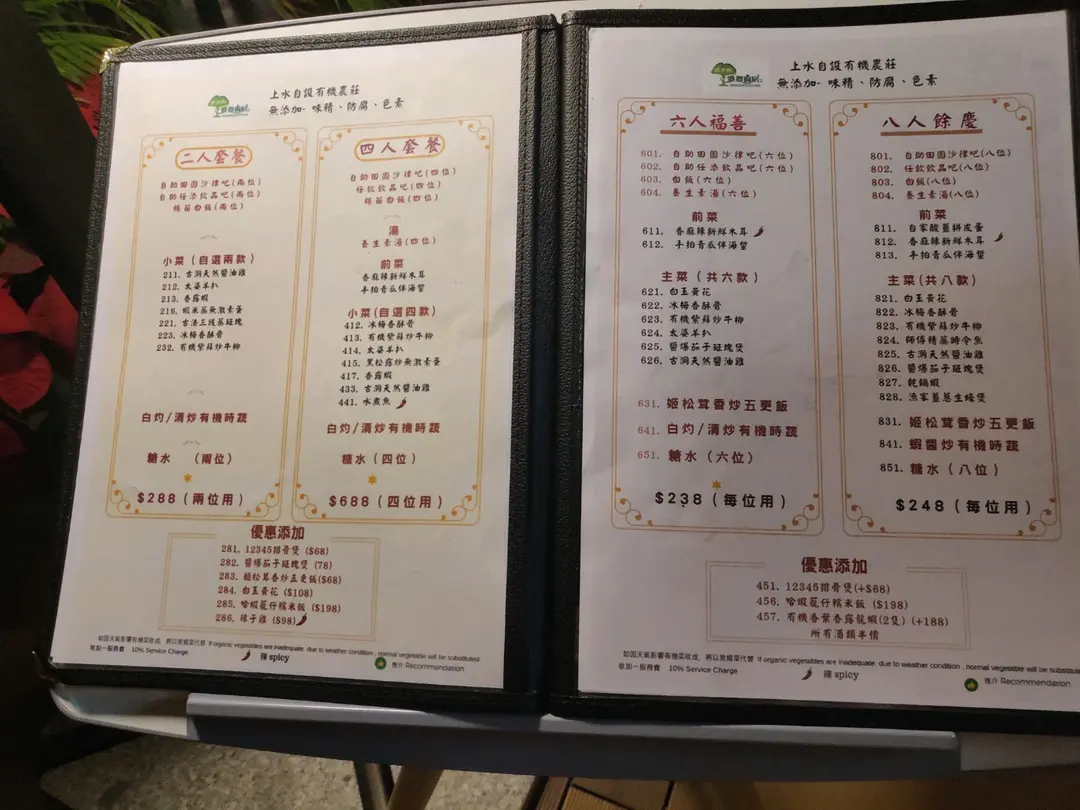 上水自設有機農莊
無添加- 味精、防腐、色素
二人套餐
自助田園沙律吧(兩位)
自助任添飲品吧(兩位)
絲苗白飯(兩位)
小菜 (自選兩款)
211. 古洞天然醬油雞
212. 太婆羊扒
213. 香露蝦
216. 蝦米蒸無激素蛋
221. 古法三蔥蒸斑塊
223. 冰梅香酥骨
232. 有機紫蘇炒牛柳
白灼/清炒有機時蔬
糖水 (兩位)
$288 (兩位用)
四人套餐
自助田園沙律吧(四位)
任飲飲品吧(四位)
絲苗白飯(四位)
湯
養生素湯(四位)
前菜
香麻辣新鮮木耳
手拍青瓜伴海蜇
小菜(自選四款)
412. 冰梅香酥骨
413. 有機紫蘇炒牛柳
414. 太婆羊扒
415. 黑松露炒無激素蛋
417. 香露蝦
433. 古洞天然醬油雞
441. 水煮魚
白灼/清炒有機時蔬
糖水 (四位)
$688 (四位用)
優惠添加
281. 12345排骨煲 ($68)
282. 醬爆茄子斑塊煲 (78)
283. 姬松茸香炒五更飯($68)
284. 白玉黃花 ($108)
285. 哈蝦籠仔糯米飯 ($198)
286. 辣子雞 ($98)
如因天氣影響有機菜收成, 將以常規菜代替 If organic vegetables are inadequate due to weather condition , normal vegetable will be substituted.
敬加一服務費 10% Service Charge
辣 spicy
推介 Recommendation
上水自設有機農莊
無添加- 味精、防腐、色素
六人福善
601. 自助田園沙律吧(六位)
602. 自助任添飲品吧(六位)
603. 白飯(六位)
604. 養生素湯(六位)
前菜
611. 香麻辣新鮮木耳
612. 手拍青瓜伴海蜇
主菜 (共六款)
621. 白玉黃花
622. 冰梅香酥骨
623. 有機紫蘇炒牛柳
624. 太婆羊扒
625. 醬爆茄子斑塊煲
626. 古洞天然醬油雞
631. 姬松茸香炒五更飯
641. 白灼/清炒有機時蔬
651. 糖水 (六位)
$238 (每位用)
八人餘慶
801. 自助田園沙律吧(八位)
802. 任飲飲品吧(八位)
803. 白飯(八位)
804. 養生素湯(八位)
前菜
811. 自家酸薑拼皮蛋
812. 香麻辣新鮮木耳
813. 手拍青瓜伴海蜇
主菜(共八款)
821. 白玉黃花
822. 冰梅香酥骨
823. 有機紫蘇炒牛柳
824. 師傅精蒸時令魚
825. 古洞天然醬油雞
826. 醬爆茄子斑塊煲
827. 乾鍋蝦
828. 漁家薑蔥生蠔煲
831. 姬松茸香炒五更飯
841. 蝦醬炒有機時蔬
851. 糖水 (八位)
$248 (每位用)
優惠添加
451. 12345排骨煲(+$68)
456. 哈蝦籠仔糯米飯 ($198)
457. 有機香葉香露龍蝦(2隻) (+188)
所有酒類半價
如因天氣影響有機菜收成, 將以常規菜代替 If organic vegetables are inadequate due to weather condition , normal vegetable will be substitute
敬加一服務費 10% Service Charge
辣 spicy
推介 Recommendation